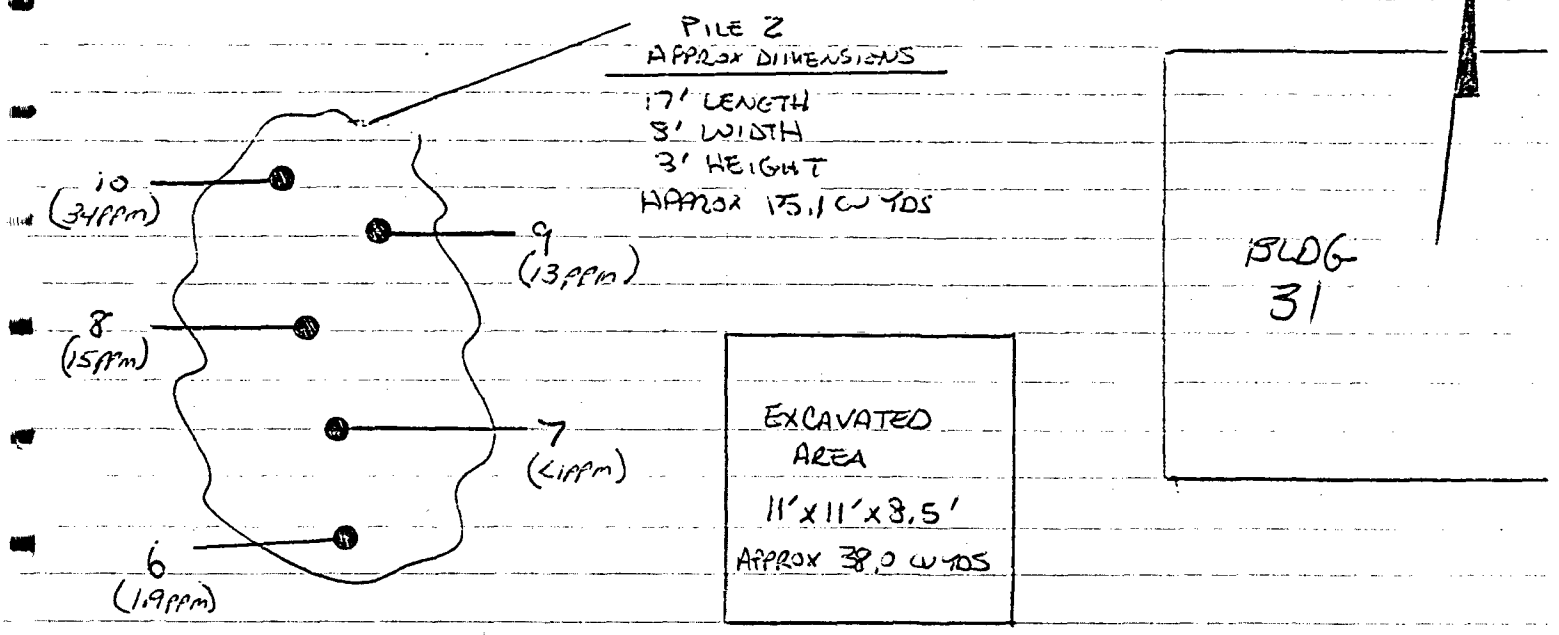 PILE 2
APPROX DIMENSIONS
17' LENGTH
8' WIDTH
3' HEIGHT
APPROX 15.1 CU YDS
10
(34ppm)
9
(13ppm)
8
(15ppm)
7
(<1ppm)
6
(1.9ppm)
EXCAVATED
AREA
11' x 11' x 8.5'
APPROX 38.0 CU YDS
BLDG
31